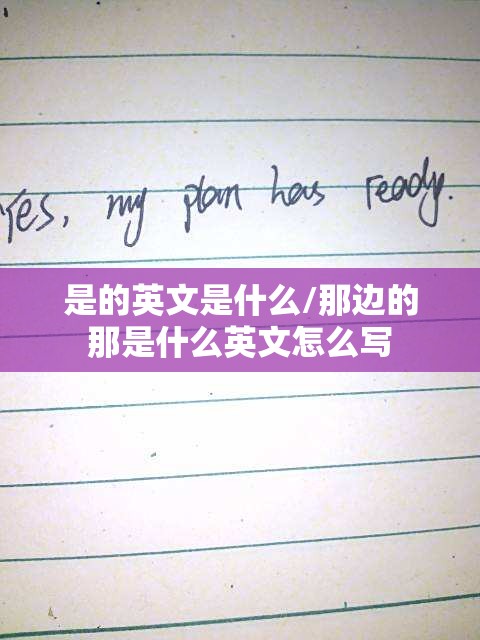 Yes, my plan has ready.
是的英文是什么/那边的
那是什么英文怎么写